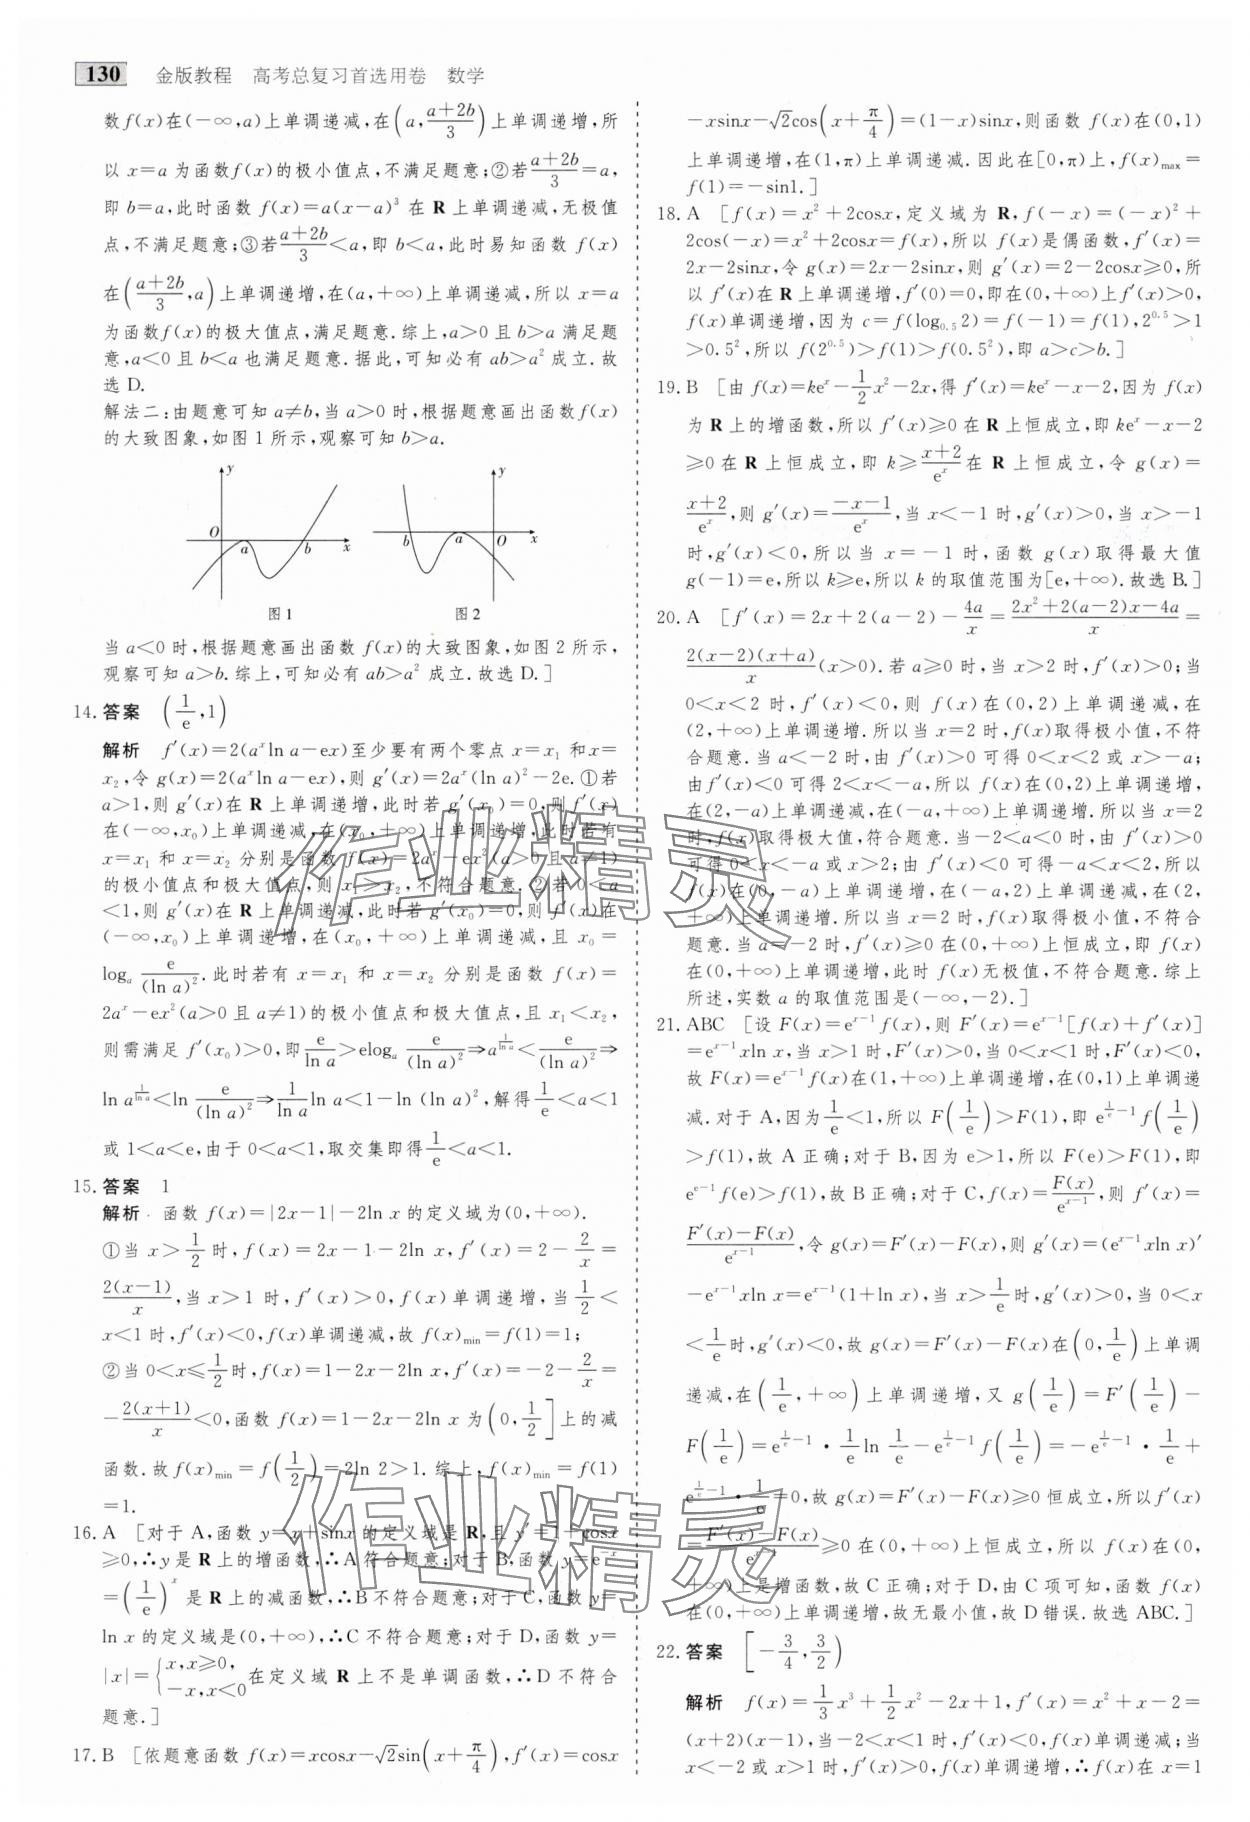 130 金版教程 高考总复习首选用卷 数学
数f(x)在(-∞,a)上单调递减,在(a,(a+2b)/3)上单调递增,所
以x=a为函数f(x)的极小值点,不满足题意;②若(a+2b)/3=a,
即b=a,此时函数f(x)=a(x-a)³在R上单调递减,无极值
点,不满足题意;③若(a+2b)/3<a,即b<a,此时易知函数f(x)
在((a+2b)/3,a)上单调递增,在(a,+∞)上单调递减,所以x=a
为函数f(x)的极大值点,满足题意.综上,a>0且b>a满足题
意,a<0且b<a也满足题意.据此,可知必有ab>a²成立.故
选D.
解法二:由题意可知a≠b,当a>0时,根据题意画出函数f(x)
的大致图象,如图1所示,观察可知b>a.
y O a b x
图1
y b a O x
图2
当a<0时,根据题意画出函数f(x)的大致图象,如图2所示,
观察可知a>b.综上,可知必有ab>a²成立.故选D.]
14.答案 (1/e,1)
解析 f′(x)=2(aˣln a-ex)至少要有两个零点x=x₁和x=
x₂,令g(x)=2(aˣln a-ex),则g′(x)=2aˣ(ln a)²-2e.①若
a>1,则g′(x)在R上单调递增,此时若g′(x₀)=0,则f′(x)
在(-∞,x₀)上单调递减,在(x₀,+∞)上单调递增,此时若有
x=x₁和x=x₂分别是函数f(x)=2aˣ-ex²(a>0且a≠1)
的极小值点和极大值点,则x₁>x₂,不符合题意.②若0<a
<1,则g′(x)在R上单调递减,此时若g′(x₀)=0,则f′(x)在
(-∞,x₀)上单调递增,在(x₀,+∞)上单调递减,且x₀=
logₐ e/(ln a)².此时若有x=x₁和x=x₂分别是函数f(x)=
2aˣ-ex²(a>0且a≠1)的极小值点和极大值点,且x₁<x₂,
则需满足f′(x₀)>0,即e/ln a>elogₐ e/(ln a)²⇒a^(1/ln a)<e/(ln a)²⇒
ln a^(1/ln a)<ln e/(ln a)²⇒1/ln a ln a<1-ln (ln a)²,解得1/e<a<1
或1<a<e,由于0<a<1,取交集即得1/e<a<1.
15.答案 1
解析 函数f(x)=|2x-1|-2ln x的定义域为(0,+∞).
①当x>1/2时,f(x)=2x-1-2ln x,f′(x)=2-2/x=
2(x-1)/x,当x>1时,f′(x)>0,f(x)单调递增,当1/2<
x<1时,f′(x)<0,f(x)单调递减,故f(x)min=f(1)=1;
②当0<x≤1/2时,f(x)=1-2x-2ln x,f′(x)=-2-2/x=
-2(x+1)/x<0,函数f(x)=1-2x-2ln x为(0,1/2]上的减
函数.故f(x)min=f(1/2)=2ln 2>1.综上,f(x)min=f(1)
=1.
16.A [对于A,函数y=x+sinx的定义域是R,且y′=1+cosx
≥0,∴y是R上的增函数,∴A符合题意;对于B,函数y=e⁻ˣ
=(1/e)ˣ是R上的减函数,∴B不符合题意;对于C,函数y=
ln x的定义域是(0,+∞),∴C不符合题意;对于D,函数y=
|x|={x,x≥0, -x,x<0 在定义域R上不是单调函数,∴D不符合
题意.]
17.B [依题意函数f(x)=xcosx-√2sin(x+π/4),f′(x)=cosx
-xsinx-√2cos(x+π/4)=(1-x)sinx,则函数f(x)在(0,1)
上单调递增,在(1,π)上单调递减.因此在[0,π)上,f(x)max=
f(1)=-sin1.]
18.A [f(x)=x²+2cosx,定义域为R,f(-x)=(-x)²+
2cos(-x)=x²+2cosx=f(x),所以f(x)是偶函数,f′(x)=
2x-2sinx,令g(x)=2x-2sinx,则g′(x)=2-2cosx≥0,所
以f′(x)在R上单调递增,f′(0)=0,即在(0,+∞)上f′(x)>0,
f(x)单调递增,因为c=f(log₀.₅2)=f(-1)=f(1),2^0.5>1
>0.5²,所以f(2^0.5)>f(1)>f(0.5²),即a>c>b.]
19.B [由f(x)=keˣ-1/2x²-2x,得f′(x)=keˣ-x-2,因为f(x)
为R上的增函数,所以f′(x)≥0在R上恒成立,即keˣ-x-2
≥0在R上恒成立,即k≥(x+2)/eˣ在R上恒成立,令g(x)=
(x+2)/eˣ,则g′(x)=(-x-1)/eˣ,当x<-1时,g′(x)>0,当x>-1
时,g′(x)<0,所以当x=-1时,函数g(x)取得最大值
g(-1)=e,所以k≥e,所以k的取值范围为[e,+∞).故选B.]
20.A [f′(x)=2x+2(a-2)-4a/x=(2x²+2(a-2)x-4a)/x=
2(x-2)(x+a)/x(x>0).若a≥0时,当x>2时,f′(x)>0;当
0<x<2时,f′(x)<0,则f(x)在(0,2)上单调递减,在
(2,+∞)上单调递增.所以当x=2时,f(x)取得极小值,不符
合题意.当a<-2时,由f′(x)>0可得0<x<2或x>-a;
由f′(x)<0可得2<x<-a,所以f(x)在(0,2)上单调递增,
在(2,-a)上单调递减,在(-a,+∞)上单调递增.所以当x=2
时,f(x)取得极大值,符合题意.当-2<a<0时,由f′(x)>0
可得0<x<-a或x>2;由f′(x)<0可得-a<x<2,所以
f(x)在(0,-a)上单调递增,在(-a,2)上单调递减,在(2,
+∞)上单调递增.所以当x=2时,f(x)取得极小值,不符合
题意.当a=-2时,f′(x)≥0在(0,+∞)上恒成立,即f(x)
在(0,+∞)上单调递增,此时f(x)无极值,不符合题意.综上
所述,实数a的取值范围是(-∞,-2).]
21.ABC [设F(x)=eˣ⁻¹f(x),则F′(x)=eˣ⁻¹[f(x)+f′(x)]
=eˣ⁻¹xln x,当x>1时,F′(x)>0,当0<x<1时,F′(x)<0,
故F(x)=eˣ⁻¹f(x)在(1,+∞)上单调递增,在(0,1)上单调递
减.对于A,因为1/e<1,所以F(1/e)>F(1),即e^(1/e-1)f(1/e)
>f(1),故A正确;对于B,因为e>1,所以F(e)>F(1),即
e^(e-1)f(e)>f(1),故B正确;对于C,f(x)=F(x)/eˣ⁻¹,则f′(x)=
(F′(x)-F(x))/eˣ⁻¹,令g(x)=F′(x)-F(x),则g′(x)=(eˣ⁻¹xln x)′
-eˣ⁻¹xln x=eˣ⁻¹(1+ln x),当x>1/e时,g′(x)>0,当0<x
<1/e时,g′(x)<0,故g(x)=F′(x)-F(x)在(0,1/e)上单调
递减,在(1/e,+∞)上单调递增,又g(1/e)=F′(1/e)-
F(1/e)=e^(1/e-1)·1/e ln 1/e-e^(1/e-1)f(1/e)=-e^(1/e-1)·1/e+
e^(1/e-1)·1/e=0,故g(x)=F′(x)-F(x)≥0恒成立,所以f′(x)
=(F′(x)-F(x))/eˣ⁻¹≥0在(0,+∞)上恒成立,所以f(x)在(0,
+∞)上是增函数,故C正确;对于D,由C项可知,函数f(x)
在(0,+∞)上单调递增,故无最小值,故D错误.故选ABC.]
22.答案 [-3/4,3/2)
解析 f(x)=1/3x³+1/2x²-2x+1,f′(x)=x²+x-2=
(x+2)(x-1),当-2<x<1时,f′(x)<0,f(x)单调递减;当
x<-2或x>1时,f′(x)>0,f(x)单调递增,∴f(x)在x=1
作业精灵
作业精灵